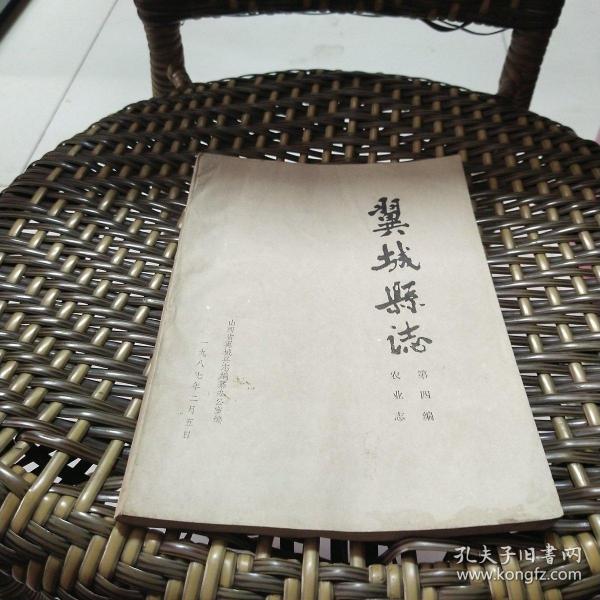 翼城縣誌
第四编
农业志
山西省翼城县志编纂办公室编
一九八七年二月五日
孔夫子旧書网
www.kongfz.com